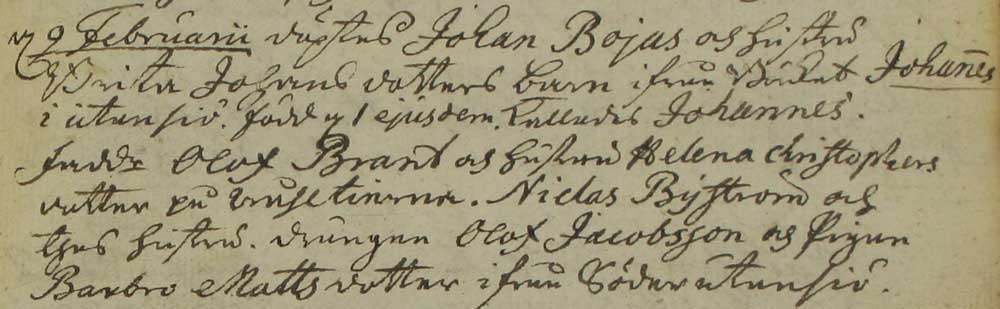 d 9 Februarii döptes Johan Bojas och hustru
Brita Johans dotters barn ifrån Johannes
i utansiö. född d 1 ejusdem. kallades Johannes.
fadd: Olof Brant och hustru Helena Christophers
dotter på . Niclas Byström och
thes hustru. drängen Olof Jacobsson och Pigan
Barbro Matts dotter ifrån Söder utansiö.